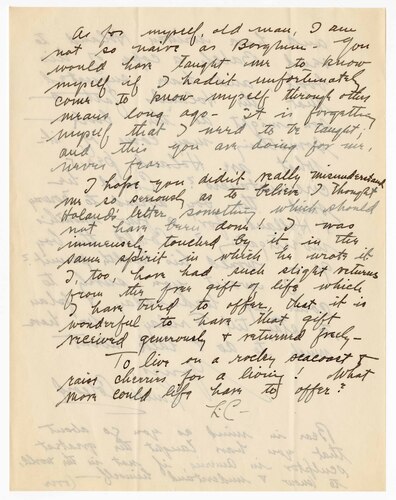 As for myself, old man, I am
not so naive as Borghum - You
would have taught me to know
myself if I hadn't unfortunately
come to know myself through other
means long ago - It is forgetting
myself that I need to be taught,
and this you are doing for me,
never fear.
I hope you didn't really misunderstand
me so seriously as to believe I thought
Holand's letter something which should
not have been done! I was
immensely touched by it in the
same spirit in which he wrote it
I, too, have had such slight returns
from the free gift of life which
I have tried to offer, that it is
wonderful to have that gift
received generously & returned freely -
To live on a rocky seacoast &
raise chevrons for a living! What
more could life have to offer?
L.C. -